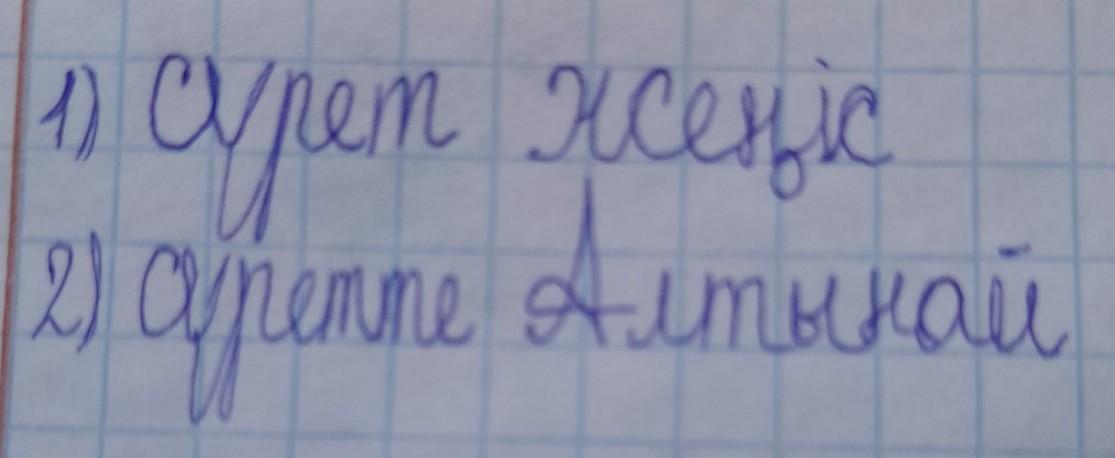 1) Сурет жеңіс
2) Суретте Алтынай